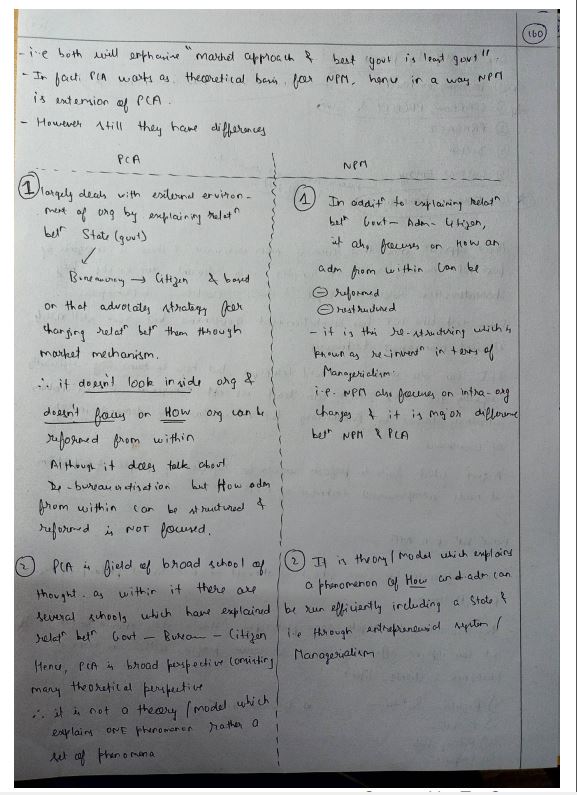 160
- i.e both will emphasise "market approach & best govt is least govt".
- In fact PCA works as theoretical basis for NPM, hence in a way NPM
is extension of PCA.
- However still they have differences
PCA
① largely deals with external environ-
ment of org by explaining relatn
betn State (govt)
↙
Bureaucracy → Citizen & based
on that advocates strategy for
changing relatn betn them through
market mechanism.
∴ it doesn't look inside org &
doesn't focus on HOW org can be
reformed from within
Although it does talk about
De-bureaucratisation but How adm
from within can be structured &
reformed is NOT focused.
② PCA is field of broad school of
thought. as within it there are
several schools which have explained
relatn betn Govt - Bureau - Citizen
Hence, PCA is broad perspective consisting
many theoretical perspective
∴ it is not a theory/model which
explains ONE phenomenon rather a
set of phenomena
NPM
① In additn to explaining relatn
betn Govt - Adm - Citizen,
it also focuses on How an
adm from within can be
⊖ reformed
⊖ restructured
- it is this re-structuring which is
known as re-inventn in terms of
Managerialism.
i.e. NPM also focuses on intra-org
changes & it is major difference
betn NPM & PCA
2 It is theory/model which explains
a phenomenon of How adm can
be run efficiently including a State &
i.e through entrepreneurial system/
Managerialism